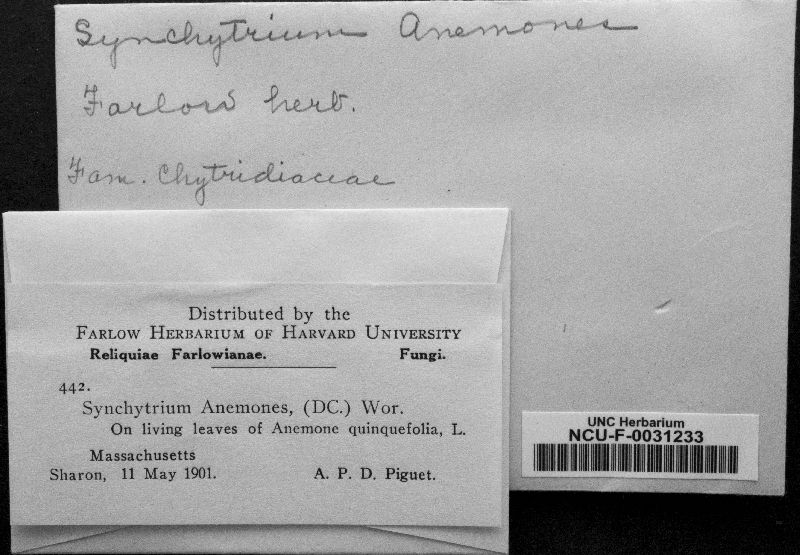 Synchytrium Anemones
Farlow herb.
Fam. Chytridiaceae
Distributed by the
FARLOW HERBARIUM OF HARVARD UNIVERSITY
Reliquiae Farlowianae. Fungi.
442.
Synchytrium Anemones, (DC.) Wor.
On living leaves of Anemone quinquefolia, L.
Massachusetts
Sharon, 11 May 1901. A. P. D. Piguet.
UNC Herbarium
NCU-F-0031233